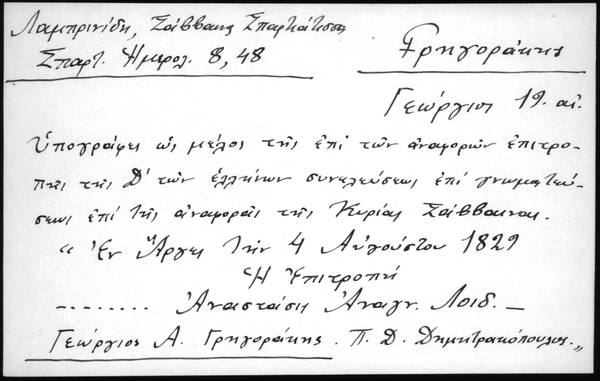 Λαμπρινίδη, Σάββαινα Σπαρτιάτισσα
Σπαρτ. Ημερολ. 8, 48
Γρηγοράκης
Γεώργιος 19. αἰ.
Ὑπογράφει ὡς μέλος τῆς ἐπί τῶν ἀναφορῶν ἐπιτρο-
πῆς τῆς Δ' τῶν ἑλλήνων συνελεύσεως ἐπί γνωματεύ-
σεως ἐπί τῆς ἀναφορᾶς τῆς Κυρίας Σάββαινας.
"Ἐν Ἄργει τήν 4 Αὐγούστου 1829
Ἡ Ἐπιτροπή
........ Ἀναστάση Ἀναγν. Λοιδ. –
Γεώργιος Α. Γρηγοράκης. Π. Δ. Δημητρακόπουλος."